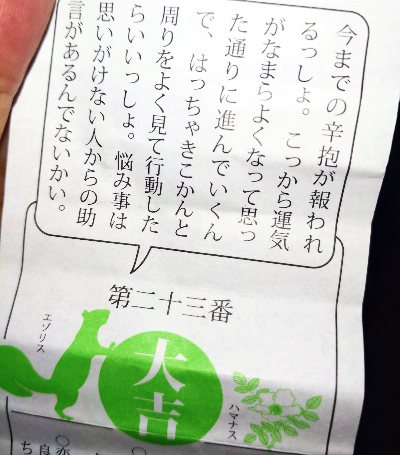 今までの辛抱が報われ
るっしょ。こっから運気
がなまらよくなって思っ
た通りに進んでいくん
で、はっちゃきこかんと
周りをよく見て行動した
らいいっしょ。悩み事は
思いがけない人からの助
言があるんでないかい。
第二十三番
エゾリス
大吉
ハマナス